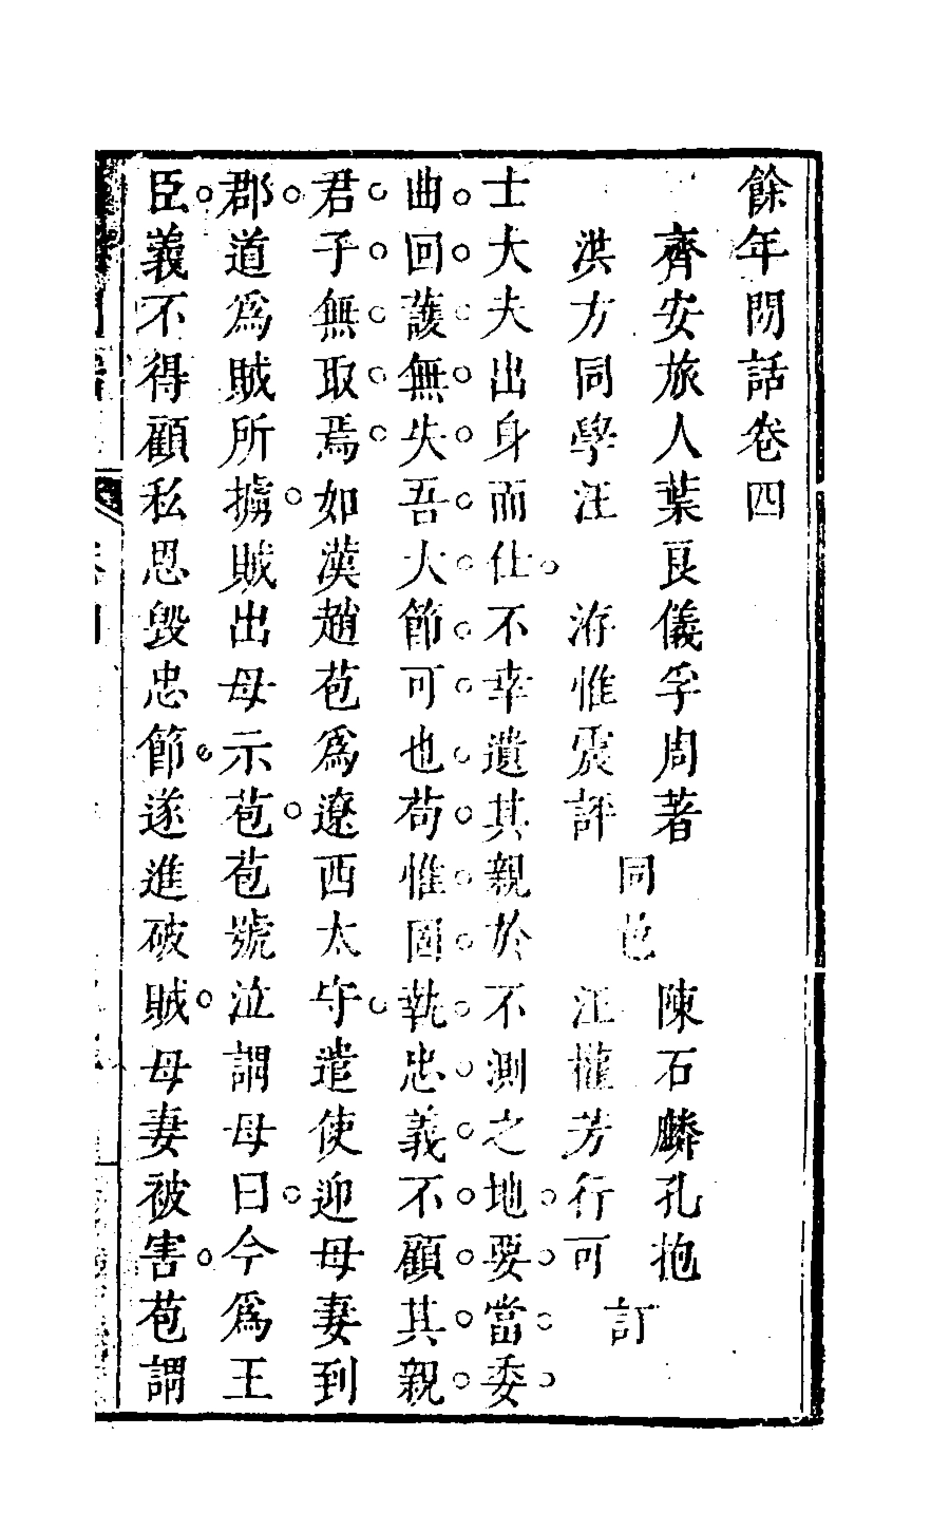 餘年閒話卷四
齊安旅人葉良儀孚周著 同邑 陳石麟孔抱 訂
洪方同學汪 洊惟震評 汪權芳行可
士大夫出身而仕不幸遺其親於不測之地要當委
曲回護無失吾大節可也苟惟固執忠義不顧其親
君子無取焉如漢趙苞為遼西太守遣使迎母妻到
郡道為賊所擄賊出母示苞苞號泣謂母曰今為王
臣義不得顧私恩毀忠節遂進破賊母妻被害苞謂